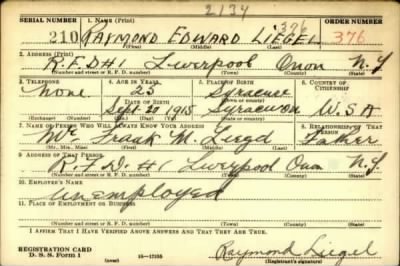 2134
SERIAL NUMBER 1. NAME (Print) ORDER NUMBER
210 RAYMOND EDWARD LIEGEL 376 376
(First) (Middle) (Last)
2. ADDRESS (Print)
R.F.D #1 Liverpool Onon N.Y
(Number and street or R. F. D. number) (Town) (County) (State)
3. TELEPHONE 4. AGE IN YEARS 5. PLACE OF BIRTH 6. COUNTRY OF CITIZENSHIP
None 25 Syracuse
DATE OF BIRTH
Sept 27 1915 Syracuse U.S.A
(Exchange) (Number) (Mo.) (Day) (Yr.) (Town or county) (State or country)
7. NAME OF PERSON WHO WILL ALWAYS KNOW YOUR ADDRESS 8. RELATIONSHIP OF THAT PERSON
Mr Frank M. Liegel Father
(Mr., Mrs., Miss) (First) (Middle) (Last)
9. ADDRESS OF THAT PERSON
R.F.D. #1 Liverpool Onon N.Y
(Number and street or R. F. D. number) (Town) (County) (State)
10. EMPLOYER'S NAME
Unemployed
11. PLACE OF EMPLOYMENT OR BUSINESS
(Number and street or R. F. D. number) (Town) (County) (State)
I AFFIRM THAT I HAVE VERIFIED ABOVE ANSWERS AND THAT THEY ARE TRUE.
REGISTRATION CARD
D. S. S. Form 1 (over) 16-17105 Raymond Liegel
(Registrant's signature)